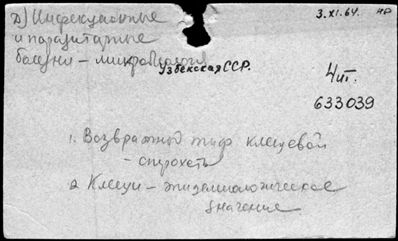 д) Инфекционные
и паразитарные
болезни - микробиология
3.XI.64.
Узбекская ССР.
4 шт.
633039
1. Возвратный тиф клещевой
- спирохеты
2. Клещи - эпидемиологическое
значение